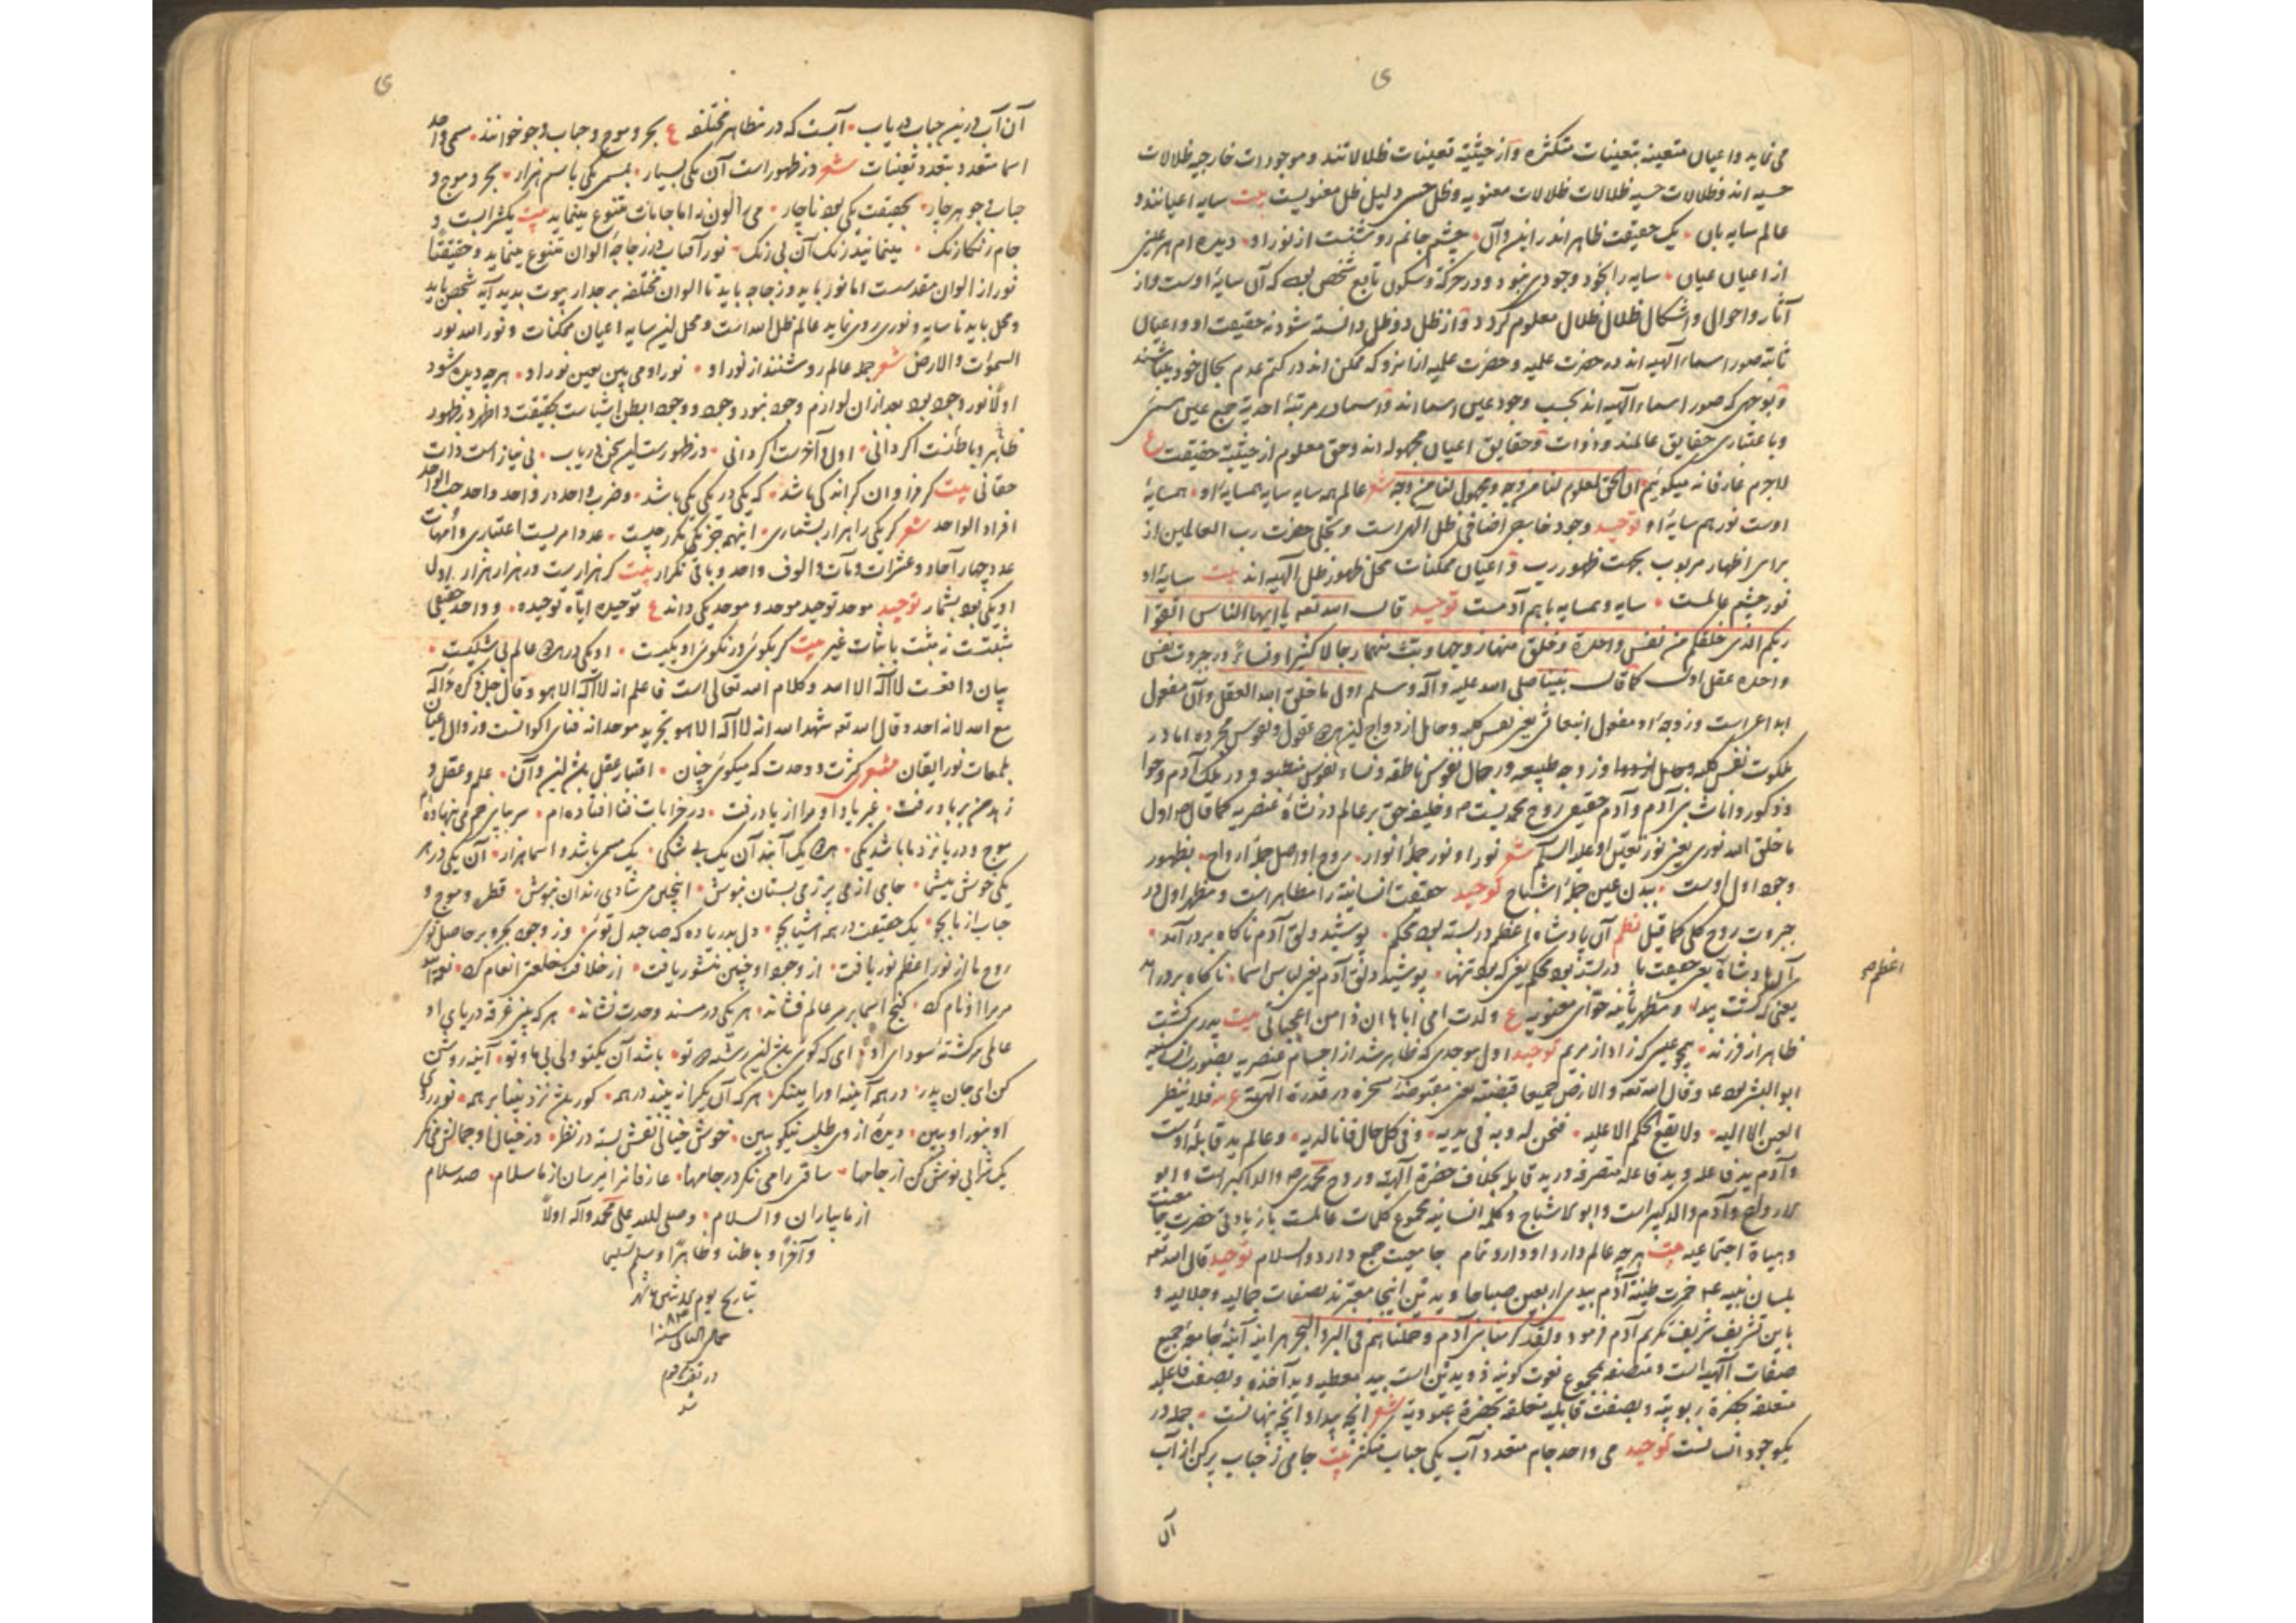 می نماید و اعیان متعینه بتعینات متکثره و از حیثیته تعینات ظلالاتند و موجودات خارجیه ظلالات
حسیه اند و ظلالات حسیه ظلالات معنویه و ظل حسی دلیل ظل معنویست بیت سایه اعیانند و
عالم سایه بان یک حقیقت ظاهر اندر این و آن چشم جانم روشنست از نور او دیده ام هر عینی
از اعیان عیان سایه را بخود وجودی نبود و در حرکة و سکون تابع شخصی بود که آن سایۀ اوست و از
آثار و احوال و اشکال ظلال ظلال معلوم کردد و از ظل ذو ظل دانسته شود نه حقیقت او و اعیان
ثابته صور اسماء الهیه اند در حضرت علمیه و حضرت علمیه ازانرو که ممکن اند در کتم عدم بحال خود باشند
و بوجهی که صور اسماء الهیه اند بحسب وجود عین اسما اند و اسما در مرتبۀ احدیة جمع عین مسمی
و باعتباری حقایق عالمند و ذوات و حقایق اعیان مجهوله اند و حق معلوم از حیثیة حقیقت ع
لاجرم عارفانه میکوئیم ان الحق المعلوم لنا من وجه و مجهول لنا من وجه شعر عالم همه سایه سایه همسایۀ او همسایۀ
اوست نور هم سایۀ او توحید وجود خارجی اضافی ظل الهی است و تجلی حضرت رب العالمین از
برای اظهار مربوب بجهت ظهور رب و اعیان ممکنات محل ظهور ظل الهیه اند بیت سایۀ او
نور چشم عالمست سایه و همسایه باهم آدمست توحید قال الله تعه یا ایها الناس اتقوا
ربکم الذی خلقکم من نفس واحدة و خلق منها زوجها و بث منهما رجالا کثیرا و نساء و در جبروت نفس
واحده عقل اول کما قال نبینا صلی الله علیه و آله و سلم اول ما خلق الله العقل و آن مفعول
ابداعی است و زوجۀ او مفعول انبعاثی یعنی نفس کلیه و حاصل ازدواج این هر دو عقول و نفوس مجرده اما در
ملکوت نفس کلیه و زوجه طبیعه و رجال نفوس ناطقه و نساء نفوس منطبعه و در ملک آدم و حوا
و ذکور و اناث بنی آدم و آدم حقیقی روح محمدیست و خلیفه حق بر عالم در نشاۀ عنصریه کما قال اول
ما خلق الله نوری یعنی نور تعقل او علیه السلم شعر نور او نور جملۀ انوار روح او اصل جملۀ ارواح بظهور
وجود اول اوست ببدن عین جملۀ اشباح توحید حقیقت انسانیة را مظاهر است و مظهر اول در
جبروت روح کلی کما قیل نظم آن پادشاه اعظم در بسته بود محکم پوشید دلق آدم ناکاه بر در آمد
آن پادشاه یعنی حقیقت ما در بسته بود محکم یعنی که بود تنها پوشید دلق آدم یعنی لباس اسما ناکاه بر در آمد
یعنی که کشت پیدا و مظهر ثانیه حوای معنویه ع ولدت امی اباها ان ذا من اعجباتی بیت پدری کشت
ظاهر از فرزند همچو عیسی که زاد از مریم توحید اول موجدی که ظاهر شد از اجسام عنصریه بصورت انسانیه
ابو البشر بود و قال الله تعه و الارض جمیعا قبضته یعنی مقبوضه مسخره در قدرة الهیة ع فلا ینظر
العین الا الیه ولا یقع الحکم الا علیه فنحن له و به فی یدیه و فی کل حال فانا لدیه و عالم ید قابلۀ اوست
و آدم ید فاعله و ید فاعله متصرفه در ید قابله بخلاف حضرة الهیة و روح محمدی والد اکبر است و ابو
الارواح و آدم والد کبیر است و ابو الاشباح و کلمه انسانیه مجموع کلمات عالمست با زیادتی حضرت جامعیت
و هیاة اجتماعیه بیت هرچه عالم دارد او دارد تمام جامعیت جمع دارد والسلام توحید قال الله تعه
بلسان نبیه خمرت طینة آدم بیدی اربعین صباحا و یدین اینجا معبرند بصفات جمالیه و جلالیه و
باین تشریف شریف تکریم آدم فرمود و لقد کرمنا بنی آدم و حملناهم فی البر و البحر هر اینه آینۀ جامعۀ جمیع
صفات الهیه است و متصف بمجموع نعوت کونیه ذو یدین است بید معطیه و ید آخذه و بصفت فاعله
متعلقه بحضرة ربوبیة و بصفت قابلیه متعلقه بحضرة عبودیة شعر آنچه پیدا و آنچه پنهانست جمله در
یکوجود انسانست توحید می واحد جام متعدد آب یکی حباب متکثر بیت جامی ز حباب پر کن از آب
آن
اعظم صح
آن آب درین حباب دریاب آبست که در مظاهر مختلفه ع بحر و موج و حباب و جو خوانند مسمی واحد
اسما متعدد بتعدد تعینات شعر در ظهور است آن یکی بسیار بمسمی یکی باسم هزار بحر و موج و
حباب و جو هر چار بحقیقت یکی بود ناچار می را لون نه اما جامات متنوع مینماید بیت یکشرابست و
جام رنکارنک مینماید رنک آن بی رنک نور آفتاب در زجاجۀ الوان متنوع مینماید و حقیقتا
نور از الوان مقدسست اما نور باید و زجاجه باید تا الوان مختلفه بر جدار بیوت پدید آید شخص باید
و محل باید تا سایه و نوری روی نماید عالم ظل الله است و محل این سایه اعیان ممکنات و نور الله نور
السموات والارض شعر جمله عالم روشنند از نور او نور او می بین بعین نور او هرچه دیده شود
اولا نور وجود بود بعد از ان لوازم وجود نبود وجود و وجود ابطن اشیاست بحقیقت و اظهر در ظهور
ظاهر و باطنست اکر دانی اول و آخرست اکر دانی در ظهورست این سخن دریاب بی نیاز است ذات
حقانی بیت کر فراوان کر اندکی باشد که یکی در یکی یکی باشد و ضرب واحد در واحد واحد حب الواحد
افراد الواحد شعر کر یکی را هزار بشماری اینهم جز یکی مکرر چیست عدد امریست اعتباری و امهات
عدد چهار آحاد و عشرات و مآت و الوف واحد و باقی تکرار بیت کر هزارست ور هزار هزار اول
او یکی بود بشمار توحید موحد توحید موحد و موحد یکی داند ع توحیده ایاه توحیده و واحد حقیقی
مثبتست نه مثبت باثبات غیر بیت کر بکوئی ور نکوئی او یکیست او یکی در هر دو عالم بی شکیست
بیان وافیست لااله الا الله و کلام الله تعالی است فاعلم انه لااله الا هو و قال جل ذکره ءاله
مع الله لانه احد و قال الله تعه شهد الله انه لااله الا هو تجرید موحدانه فنای اکوانست و زوال اعیان
بلمعات نور ایقان شعر کثرت و وحدت که میکوئی چنان اعتبار عقل باشد این و آن علم و عقل و
زهد من بر باد رفت غیر یاد او مرا از یاد رفت در خرابات فنا افتاده ام سر بپای خم می بنهاده ام
موج و دریا نزد ما باشد یکی هر دو یک آبند آن یک بی شکی یک مسمی باشد و اسما هزار آن یکی در هر
یکی خوش میشمار جامی از می پر ز می بستان بنوش اینچنین می شادی رندان بنوش قطره و موج و
حباب از ما بجو یک حقیقت در همه اشیا بجو دل بدریا ده که صاحبدل توئی وز وجود بحر و بر حاصل توئی
روح ما از نور اعظم نور یافت از وجود او چنین منشور یافت از خلافت خلعتی انعام کرد نعمة الله
مر مرا او نام کرد کنج اسما بر سر عالم فشاند هر یکی در مسند وحدت نشاند هرکه بینی غرقه دریای او
عالمی سرکشتۀ سودای او ای که کوئی باشد این رشته دو تو باشد آن یکتو ولی بی ما و تو آینه روشن
کن ای جان پدر در همه آینه او را مینکر هرکه آن یکرا نبیند در همه کور باشد نزد بینا بر همه نور روی
او بنور او ببین دیدۀ از وی طلب نیکو ببین خوش خیالی نقش بسته در نظر در خیال او جمالش می نکر
یک شرابی نوش کن از جامها ساقی را می نکر در جامها عارفانرا میرسان از ما سلام صد سلام
از ما بیاران والسلام و صلی الله علی محمد و آله اولا
و آخرا و باطنا و ظاهرا و سلم تسلیما
بتاریخ یوم
در
شد